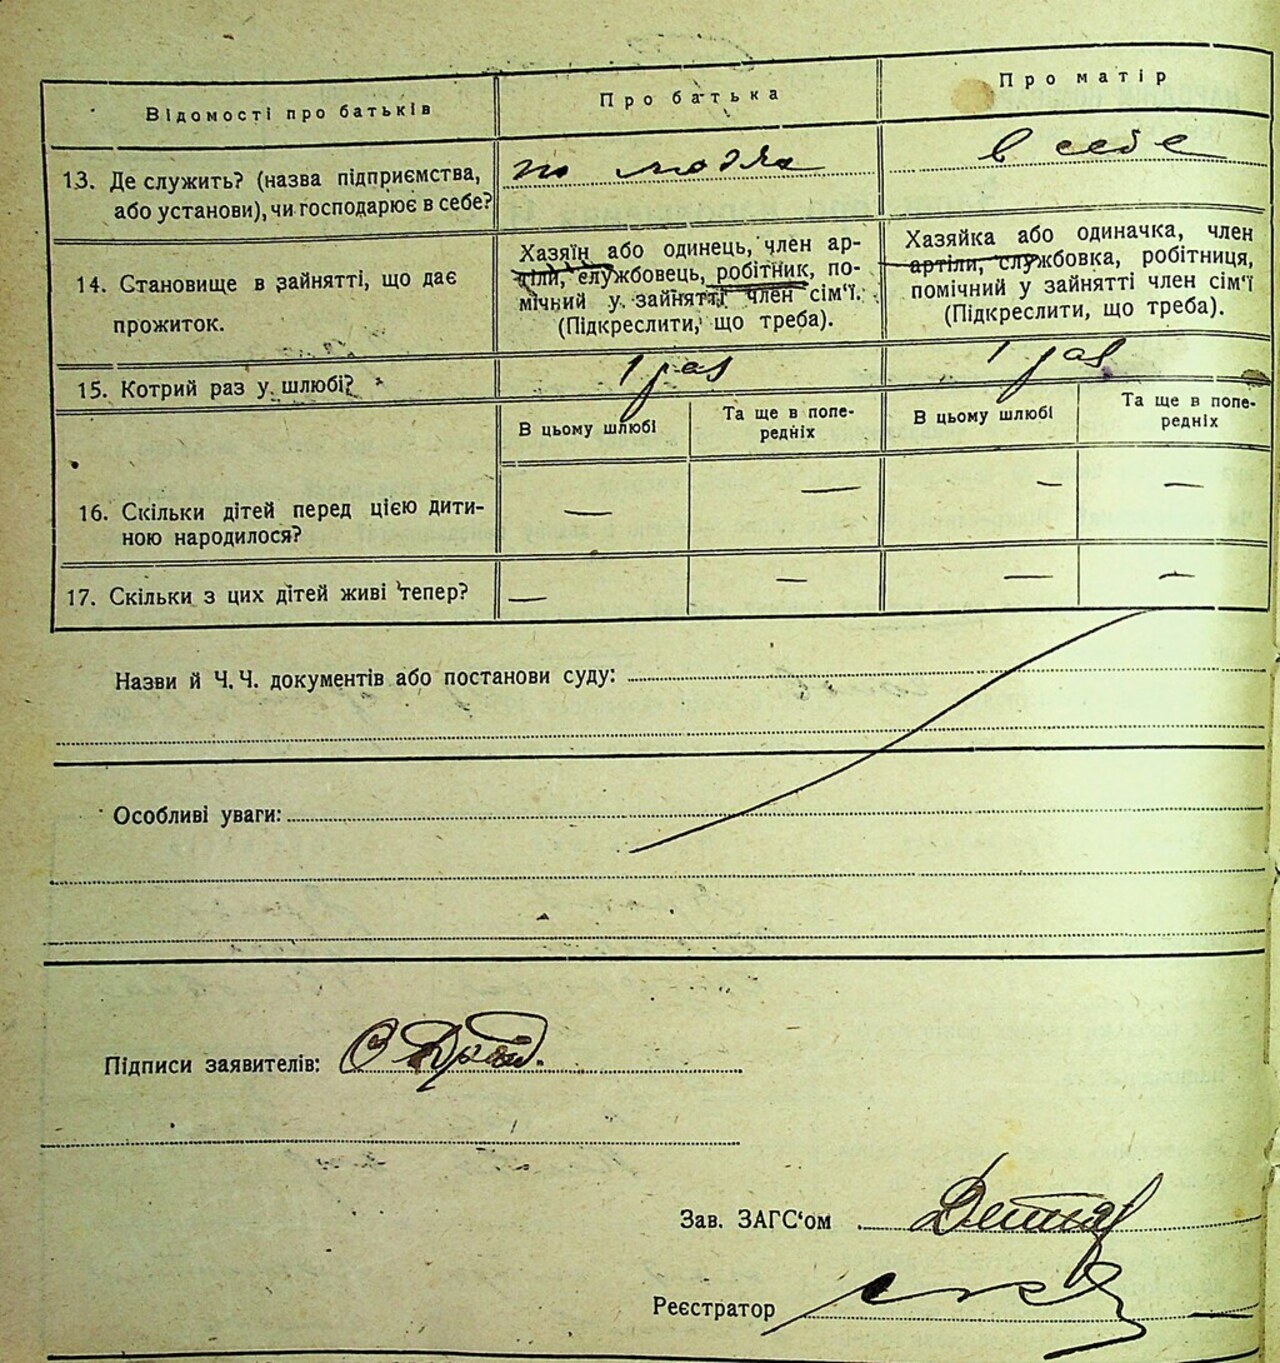 Відомості про батьків
Про батька
Про матір
13. Де служить? (назва підприємства,
або установи), чи господарює в себе?
по людях
в себе
14. Становище в зайнятті, що дає
прожиток.
Хазяїн або одинець, член ар-
тіли, службовець, робітник, по-
мічний у зайнятті член сім'ї.
(Підкреслити, що треба).
Хазяйка або одиначка, член
артіли, службовка, робітниця,
помічний у зайнятті член сім'ї
(Підкреслити, що треба).
15. Котрий раз у шлюбі?
1 раз
1 раз
В цьому шлюбі
Та ще в попе-
редніх
В цьому шлюбі
Та ще в попе-
редніх
16. Скільки дітей перед цією дити-
ною народилося?
— — — —
17. Скільки з цих дітей живі тепер?
— — — —
Назви й Ч.Ч. документів або постанови суду:
Особливі уваги:
Підписи заявителів:
Зав. ЗАГС'ом
Реєстратор